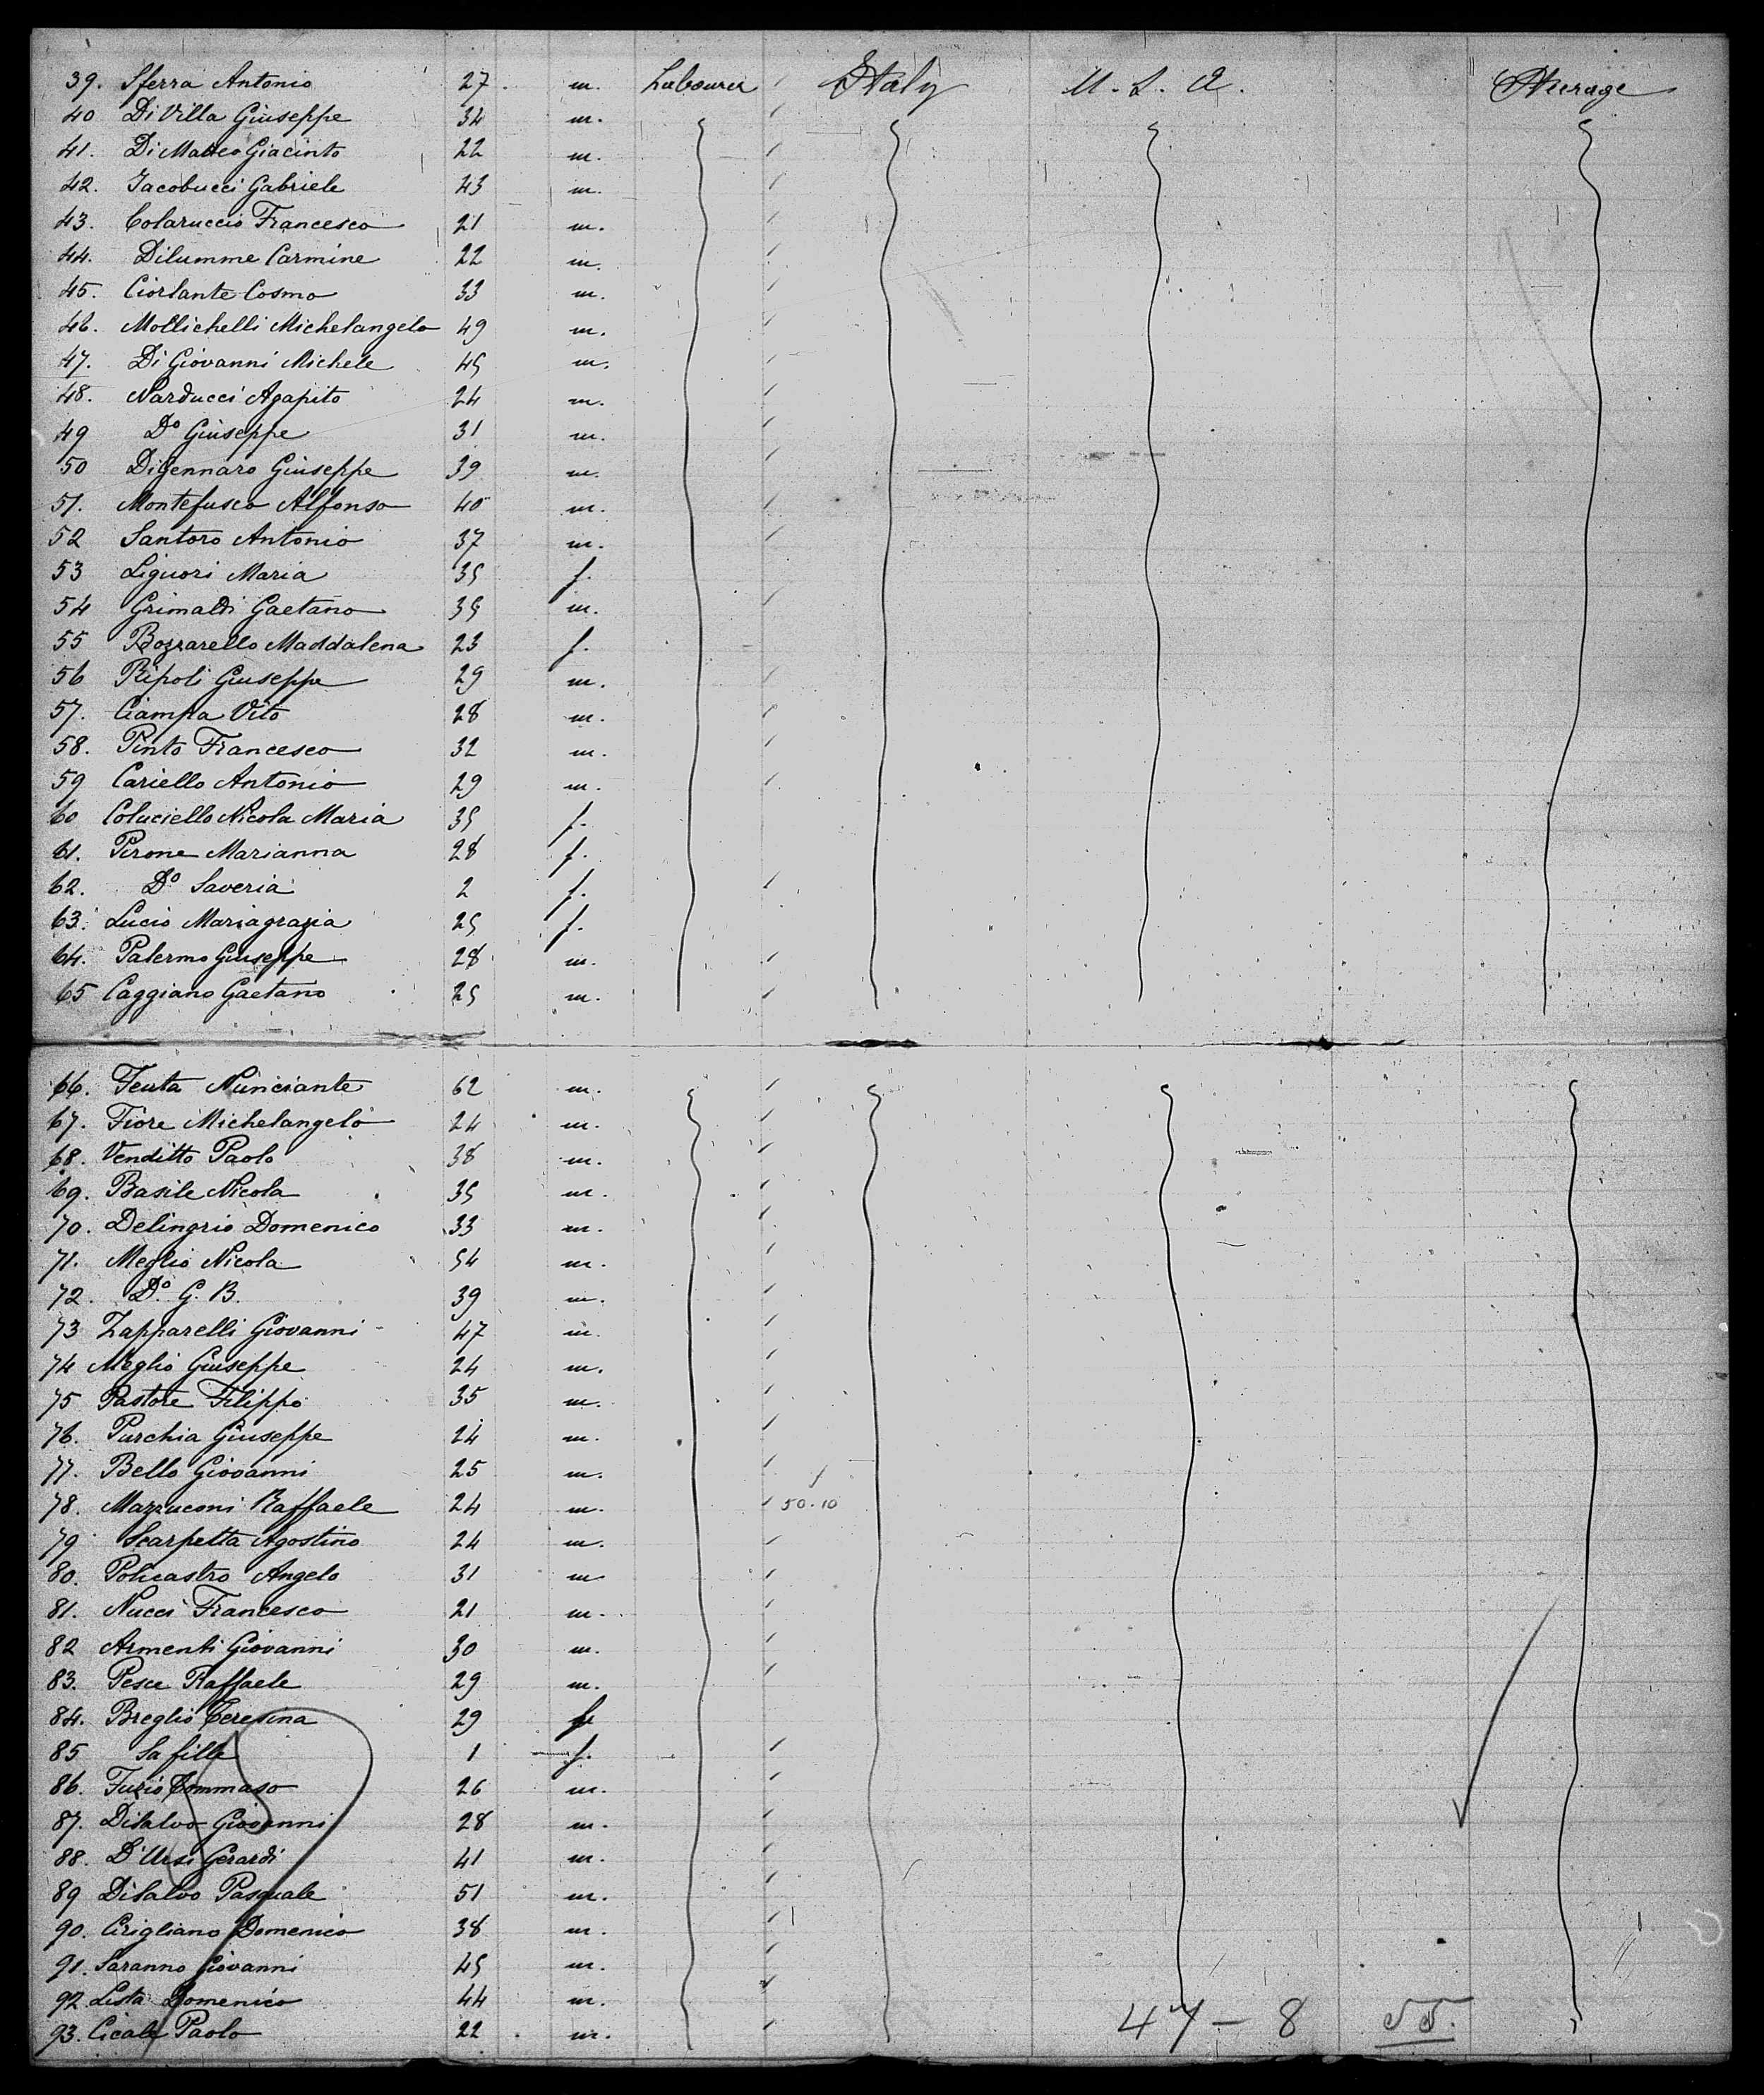 39. Sferra Antonio 27. m. Labourer Italy U. S. A. Steerage
40 Di Villa Giuseppe 34 m.
41. Di Matteo Giacinto 22 m.
42. Jacobucci Gabriele 43 m.
43. Colaruccio Francesco 21 m.
44. Dilumme Carmine 22 m.
45. Ciorlante Cosmo 33 m.
46. Mollichelli Michelangelo 49 m.
47. Di Giovanni Michele 45 m.
48. Narducci Agapito 24 m.
49 Do Giuseppe 31 m.
50 Di Gennaro Giuseppe 39 m.
51. Montefusco Alfonso 40 m.
52 Santoro Antonio 37 m.
53 Liguori Maria 35 f.
54 Grimaldi Gaetano 35 m.
55 Bozzarello Maddalena 23 f.
56 Ripoli Giuseppe 29 m.
57. Ciampa Vito 28 m.
58. Pinto Francesco 32 m.
59 Cariello Antonio 29 m.
60 Coluciello Nicola Maria 35 f.
61. Pirone Marianna 28 f.
62. Do Saveria 2 f.
63. Lucio Mariagrazia 25 f.
64. Palermo Giuseppe 28 m.
65 Caggiano Gaetano 25 m.
66. Teuta Nunciante 62 m.
67. Fiore Michelangelo 24 m.
68. Venditto Paolo 38 m.
69. Basile Nicola 35 m.
70. Delingrio Domenico 33 m.
71. Meglio Nicola 54 m.
72. Do G. B. 39 m.
73 Zapparelli Giovanni 47 m.
74 Meglio Giuseppe 24 m.
75 Pastore Filippo 35 m.
76. Purchia Giuseppe 24 m.
77. Bello Giovanni 25 m.
78. Mazzuconi Raffaele 24 m. 50.10
79 Scarpetta Agostino 24 m.
80. Policastro Angelo 31 m
81. Nucci Francesco 21 m.
82 Armenti Giovanni 30 m.
83. Pesce Raffaele 29 m.
84. Breglio Teresina 29 f
85 Sa fille 1 f.
86. Furio Tommaso 26 m.
87. Disalvo Giovanni 28 m.
88. D'Ursi Gerardi 41 m.
89 Disalvo Pasquale 51 m.
90. Cirigliano Domenico 38 m.
91. Saranno Giovanni 45 m.
92 Lista Domenico 44 m.
93. Cicale Paolo 22 m.
47 - 8 55.